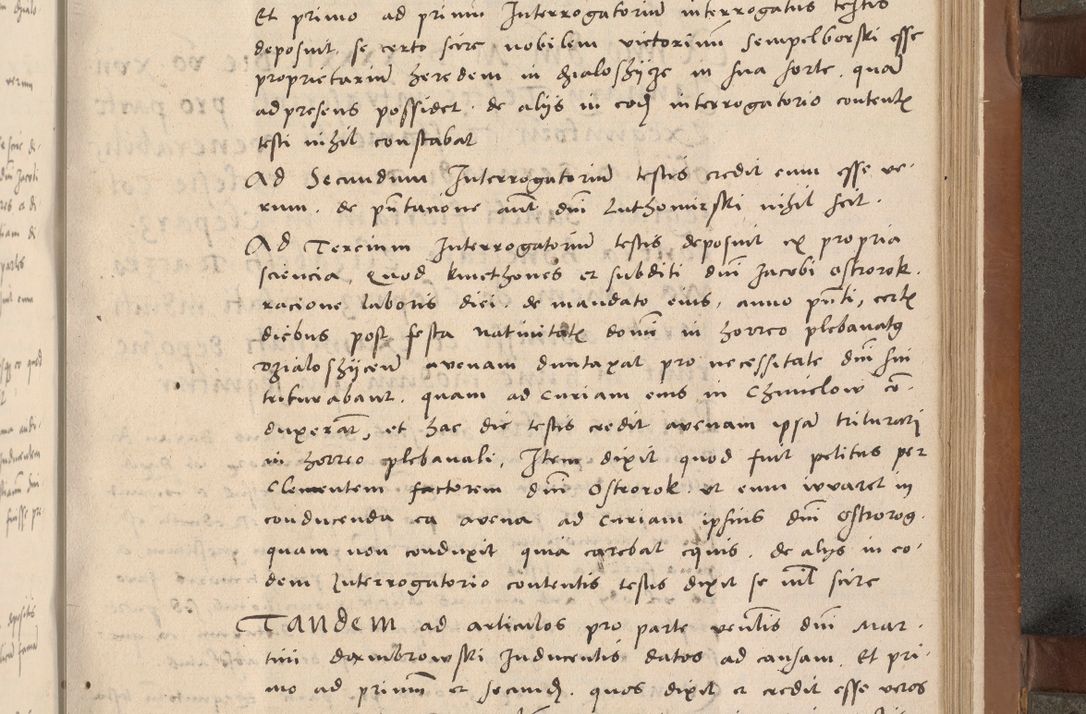 Et primo ad primũ Interrogatoriũ interrogatus testis
deposuit se certo scire nobilem victorinũ Sempelborski esse
proprietariũ heredem in dzialoshycze in sua sorte quã
adpresens possidet. de alijs in eodẽ interrogatorio contentꝭ
testi nihil constabat
Ad Secundum Interrogatoriũ testis credit eum esse ve-
rum. de pñtacione aũt dñi Luthomirski nihil scit.
Ad Tercium Interrogatoriũ testis deposuit ex propria
sciencia, Quod kmethones et subditi dñi Jacobi Ostrorok.
racione laboris diei. de mandato eius, anno pñti, certꝭ
diebus post festa nativitatꝭ domi in horreo plebanatꝰ
dzialoshycen̄ avenam duntaxat pro necessitate dñi sui
triturabant. quam ad Curiam eius in Chmielow cõ-
duxerãt, et hac die testis credit avenam ipsã triturari
in horreo plebanali, Item dixit quod fuit petitus per
Clementem factorem dñi Ostrorok. ut eum iuvaret in
conducenda ea avena ad Curiam ipsius dñi Ostrorog.
quam non conduxit quia carebat equis. de alijs in eo-
dem Interrogatorio contentis testis dixit se nil scire
TANDEM ad articulos pro parte venĩlis dñi Mar-
tini dambrowski Inducentis datos ad causam. Et pri-
mo ad primũ et secundũ. quos dixit et credit esse veros